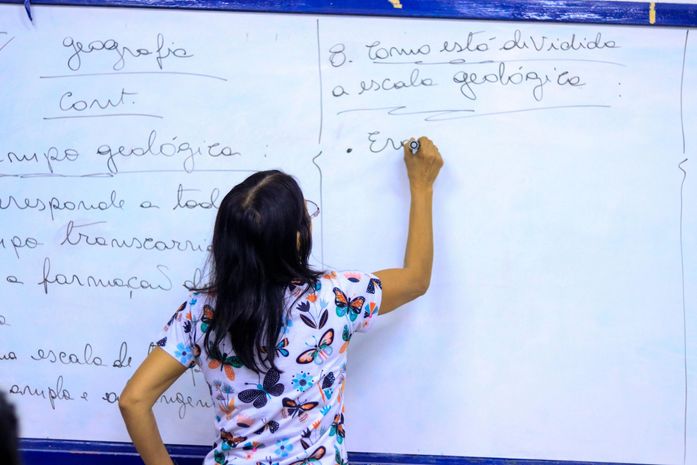 geografia
Cont.
mpo geológico :
rresponde a tod
po transcorri
a formação d
a
escala d
ampla e
8. Como está dividida
a escala geológica :
• Era